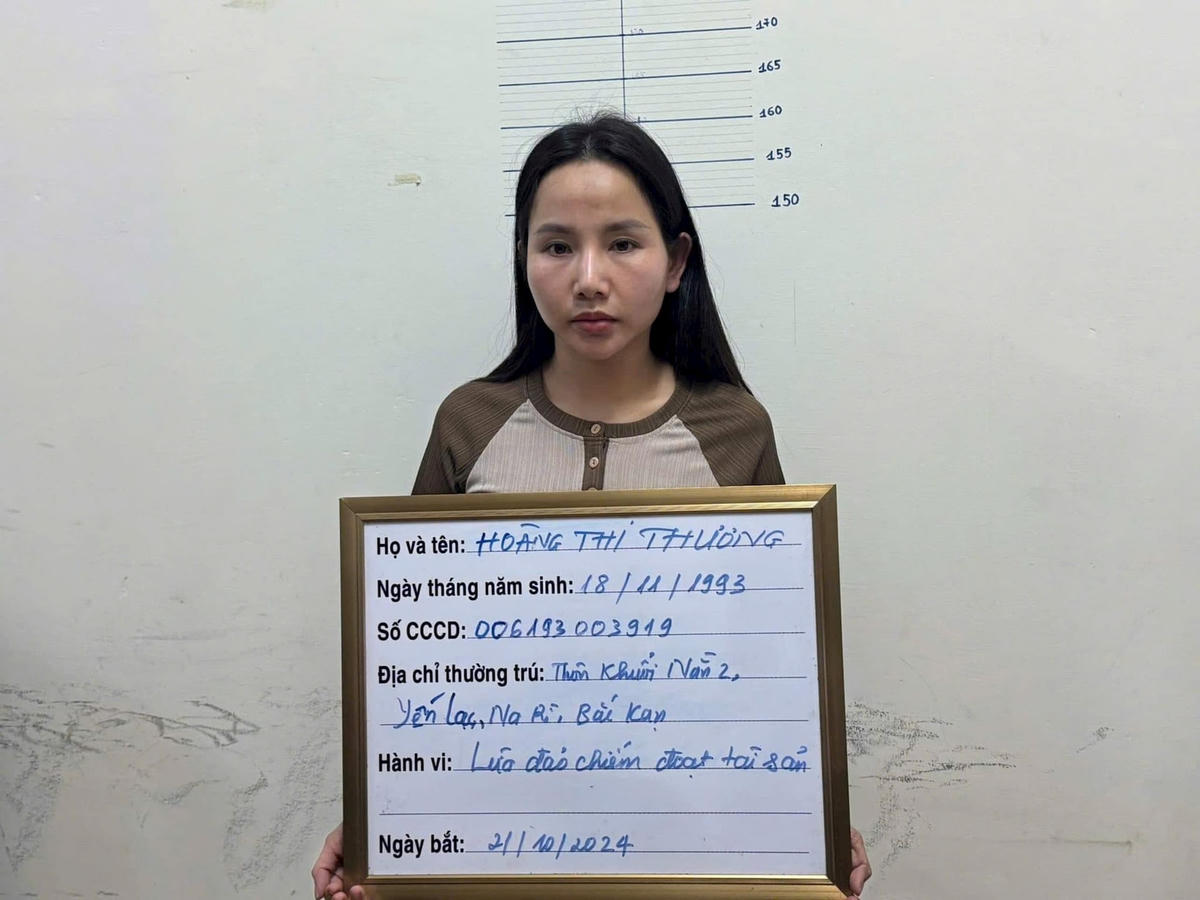 170
165
160
155
150
Họ và tên: HOÀNG THỊ THƯƠNG
Ngày tháng năm sinh: 18/11/1993
Số CCCD: 006193003919
Địa chỉ thường trú: Thôn Khuổi Nằn 2,
Yến Lạc, Na Rì, Bắc Kạn
Hành vi: Lừa đảo chiếm đoạt tài sản
Ngày bắt: 21/10/2024